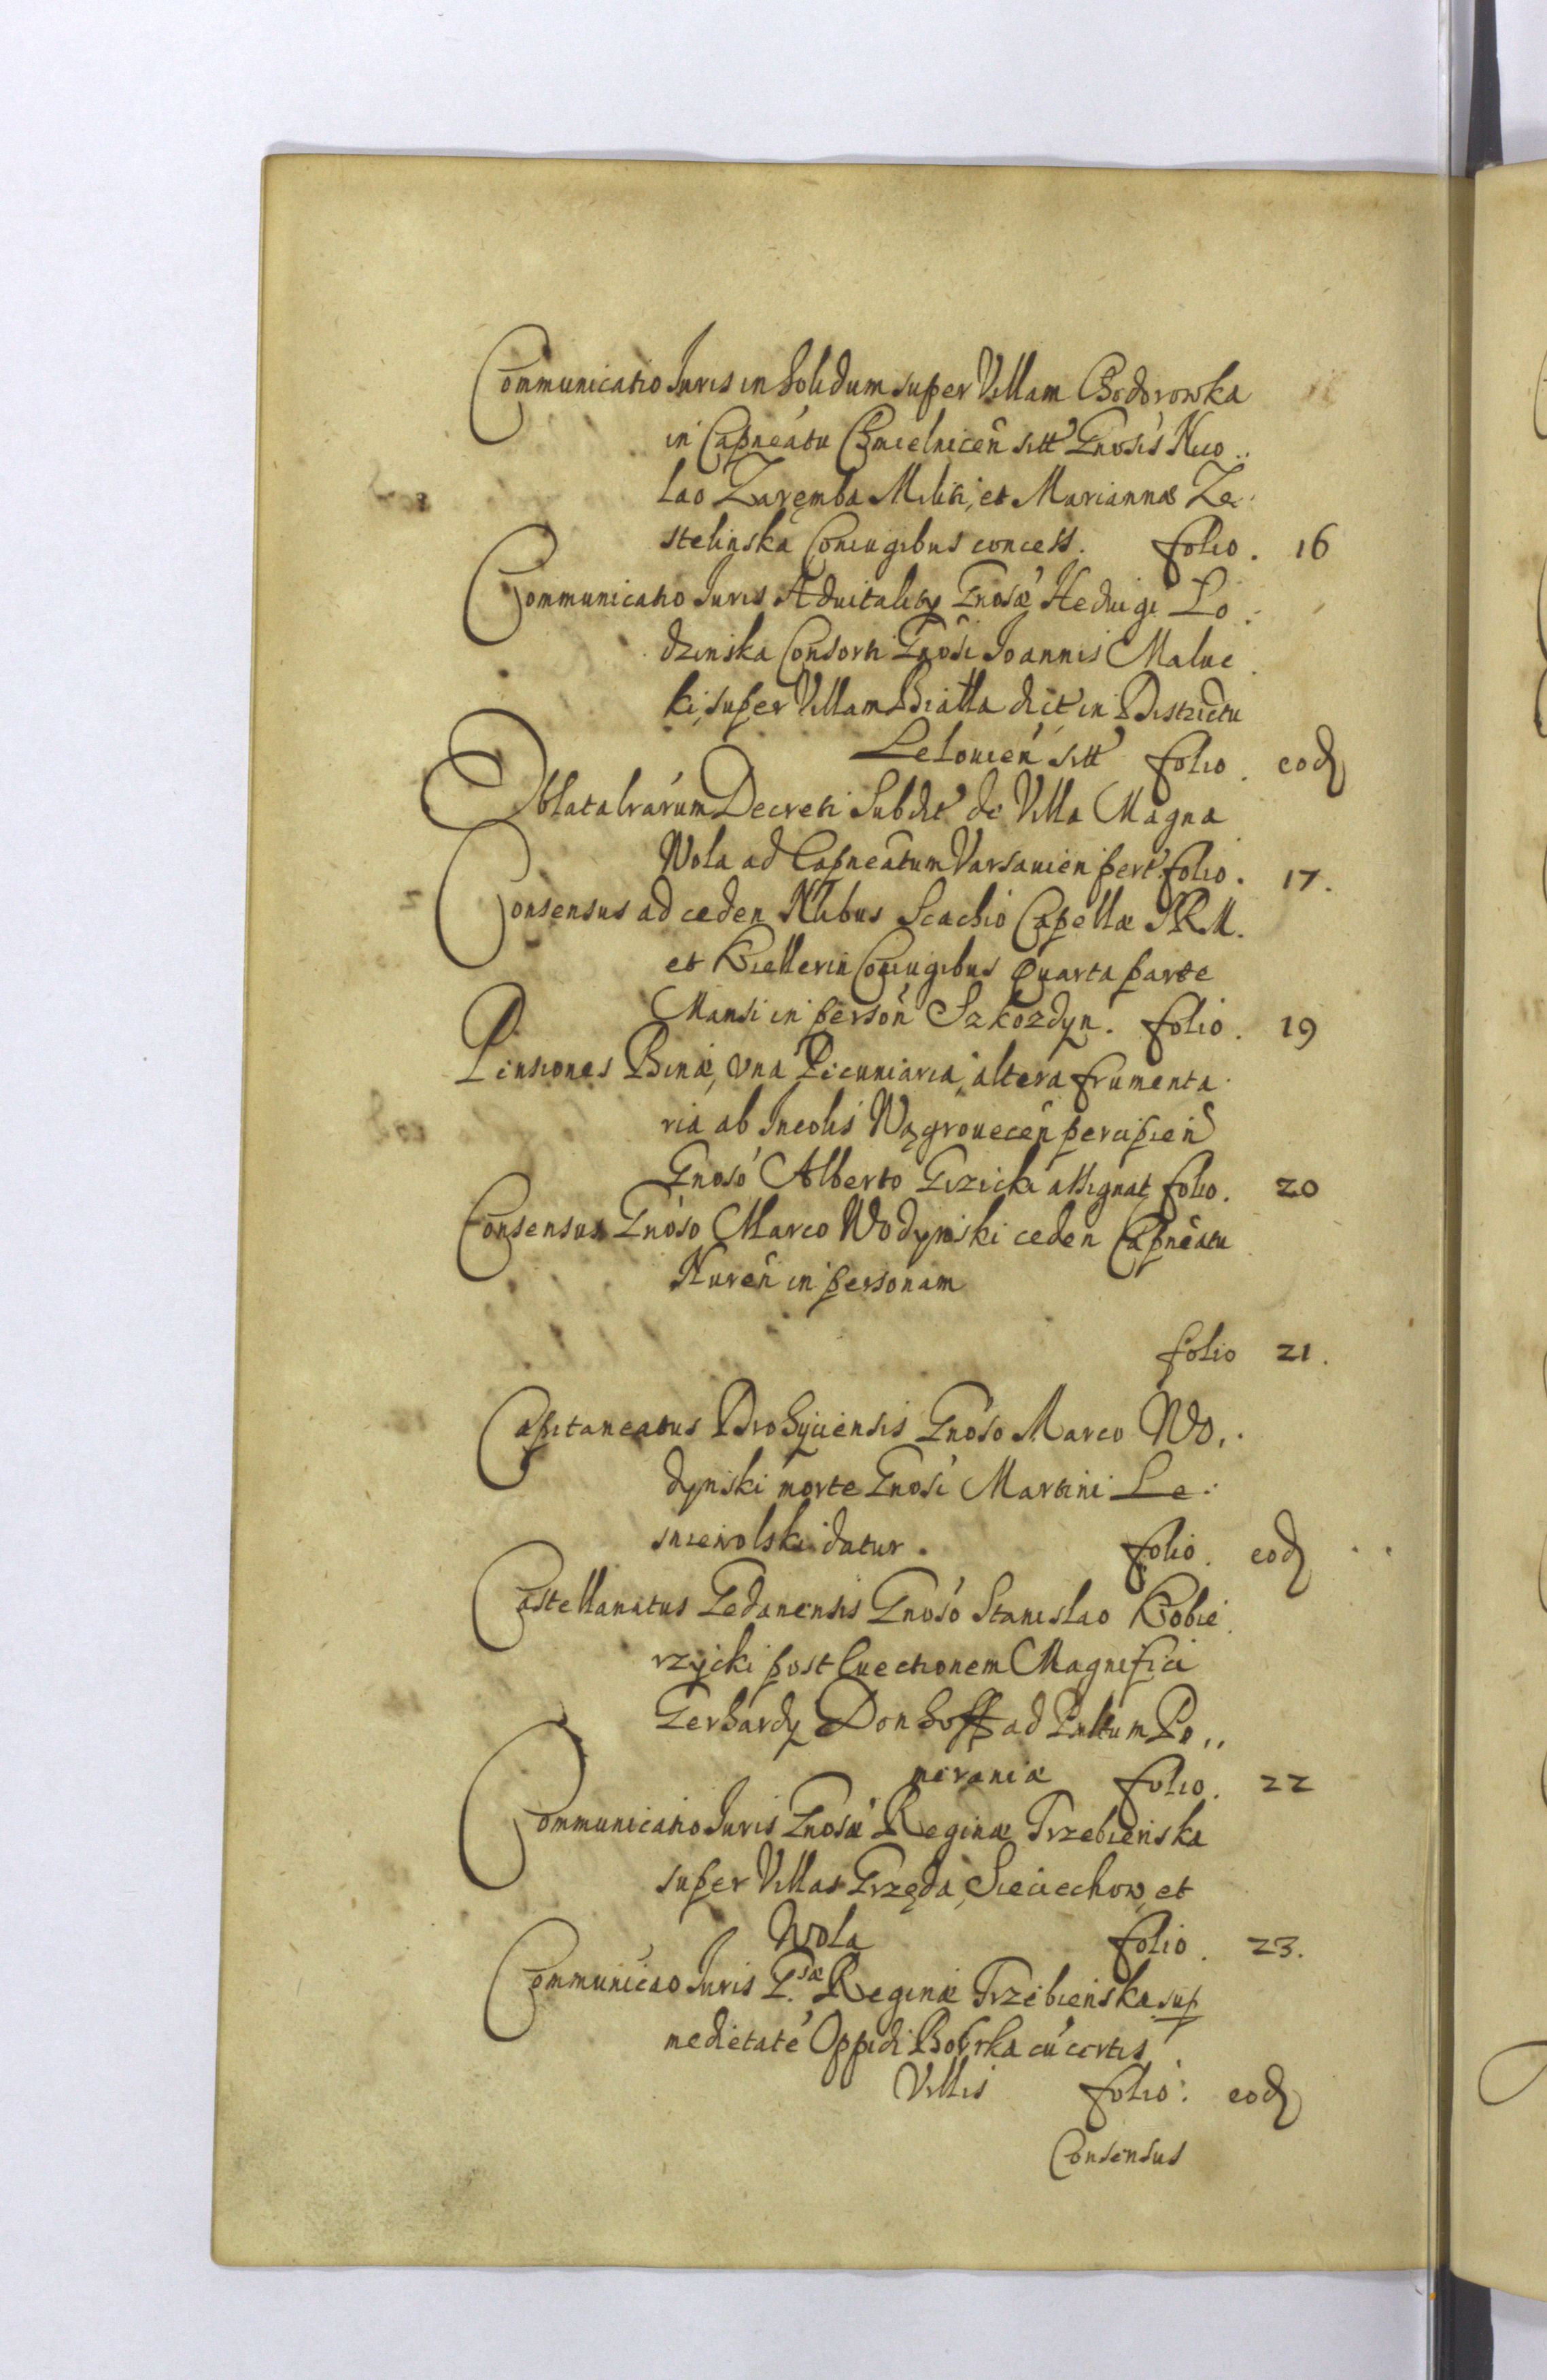 Communicatio Juris in Solidum super Villam Chodorowka
in Capneatu Chmielnicen sitt Gnosis Nico..
lao Zaręmba Militi, et Mariannæ Ze..
stelinska Coniugibus concess. folio. 16
Communicatio Juris Aduitalitij Gnosæ Heduigi Lo.
dzinska Consorti Gnosi Joannis Maluc
ki, super Villam Białła dict in Districtu
Lelouien sitt folio. eod
Oblata lrarum Decreti Subdit de Villa Magna
Wola ad Capneatum Varsauien pert folio. 17.
Consensus ad ceden Nlibus Scachio Capellæ SRM.
et Coniugibus Quarta parte
Mansi in person folio. 19
Pensiones Binæ, vna Pecuniaria, altera frumenta
ria ab Incolis Wągrouecen percipien
Gnoso Alberto Gizicki assignat folio. 20
Consensus Gnoso Marco Wodynski ceden Capneatu
Nuren in personam
folio 21.
Capitaneatus Drohijciensis Gnoso Marco Wo..
dynski morte Gnosi Martini Le.
sniewolski datur. folio. eod
Castellanatus Gedanensis Gnoso Stanislao Kobie
rzycki post Euectionem Magnifici
Gerhardy Donhoff ad Pallum Po,,
meraniæ folio. 22
Communicatio Juris Gnosæ Reginæ Trzebienska
super Villas Grzęda, Sieciechow, et
Wola folio. 23.
Communicao Juris G.sæ Reginæ Trzebienska sup
medietate Oppidi Bobrka cu certis
Villis folio. eod
Consensus